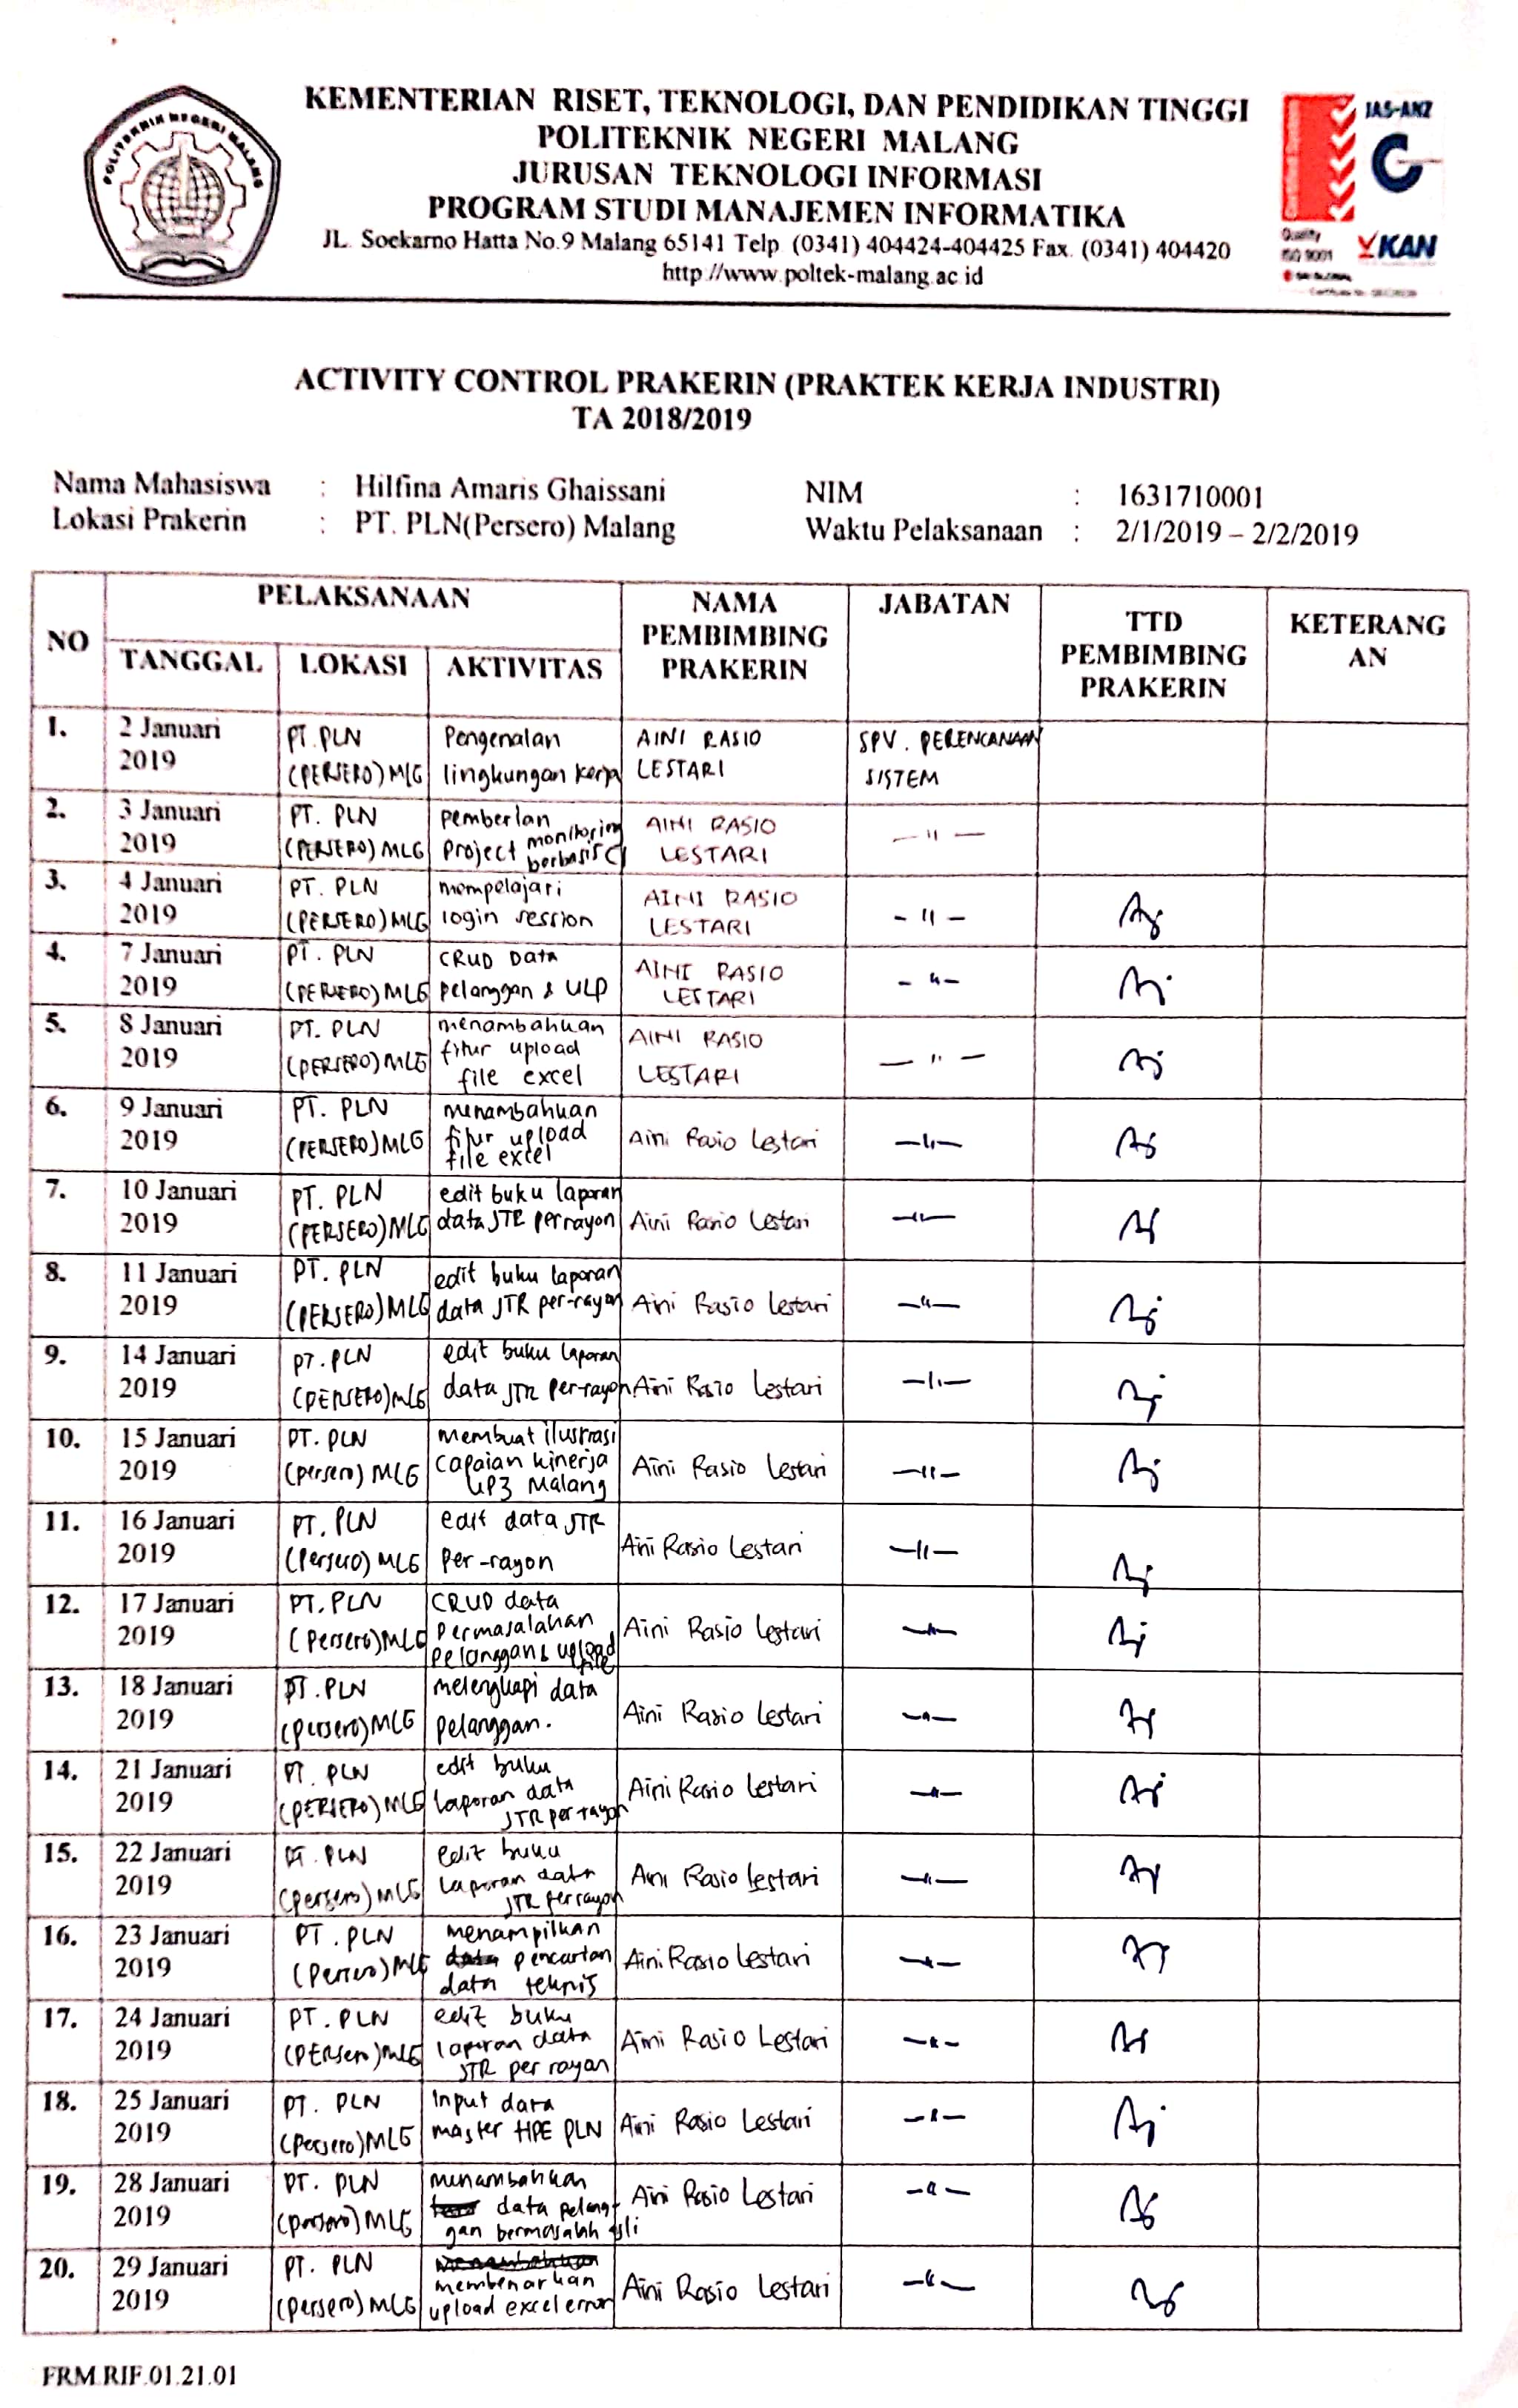 POLITEKNIK NEGERI MALANG
KEMENTERIAN RISET, TEKNOLOGI, DAN PENDIDIKAN TINGGI
POLITEKNIK NEGERI MALANG
JURUSAN TEKNOLOGI INFORMASI
PROGRAM STUDI MANAJEMEN INFORMATIKA
JL. Soekarno Hatta No.9 Malang 65141 Telp (0341) 404424-404425 Fax. (0341) 404420
http://www.poltek-malang.ac.id
JAS-ANZ
Quality
ISO 9001
KAN
ACTIVITY CONTROL PRAKERIN (PRAKTEK KERJA INDUSTRI)
TA 2018/2019
Nama Mahasiswa : Hilfina Amaris Ghaissani NIM : 1631710001
Lokasi Prakerin : PT. PLN(Persero) Malang Waktu Pelaksanaan : 2/1/2019 – 2/2/2019
NO PELAKSANAAN NAMA PEMBIMBING PRAKERIN JABATAN TTD PEMBIMBING PRAKERIN KETERANGAN
TANGGAL LOKASI AKTIVITAS
1. 2 Januari 2019 PT. PLN (PERSERO) MLG Pengenalan lingkungan kerja AINI RASIO LESTARI SPV. PERENCANAAN SISTEM
2. 3 Januari 2019 PT. PLN (PERSERO) MLG pemberian project monitoring berbasis CI AINI RASIO LESTARI — " —
3. 4 Januari 2019 PT. PLN (PERSERO) MLG mempelajari login session AINI RASIO LESTARI - " -
4. 7 Januari 2019 PT. PLN (PERSERO) MLG CRUD Data pelanggan & ULP AINI RASIO LESTARI - " -
5. 8 Januari 2019 PT. PLN (PERSERO) MLG menambahkan fitur upload file excel AINI RASIO LESTARI — " —
6. 9 Januari 2019 PT. PLN (PERSERO) MLG menambahkan fitur upload file excel Aini Rasio Lestari — " —
7. 10 Januari 2019 PT. PLN (PERSERO) MLG edit buku laporan data JTR perrayon Aini Rasio Lestari — " —
8. 11 Januari 2019 PT. PLN (PERSERO) MLG edit buku laporan data JTR per-rayon Aini Rasio Lestari — " —
9. 14 Januari 2019 PT. PLN (PERSERO) MLG edit buku laporan data JTR per-rayon Aini Rasio Lestari — " —
10. 15 Januari 2019 PT. PLN (persero) MLG membuat ilustrasi capaian kinerja UP3 Malang Aini Rasio Lestari — " —
11. 16 Januari 2019 PT. PLN (Persero) MLG edit data JTR per-rayon Aini Rasio Lestari — " —
12. 17 Januari 2019 PT. PLN (Persero) MLG CRUD data permasalahan pelanggan & upload file Aini Rasio Lestari — " —
13. 18 Januari 2019 PT. PLN (Persero) MLG melengkapi data pelanggan. Aini Rasio Lestari — " —
14. 21 Januari 2019 PT. PLN (PERSERO) MLG edit buku laporan data JTR per rayon Aini Rasio Lestari — " —
15. 22 Januari 2019 PT. PLN (Persero) MLG edit buku laporan data JTR per rayon Aini Rasio Lestari — " —
16. 23 Januari 2019 PT. PLN (Persero) MLG menampilkan data pencarian data teknis Aini Rasio Lestari — " —
17. 24 Januari 2019 PT. PLN (PERsero) MLG edit buku laporan data JTR per rayon Aini Rasio Lestari — " —
18. 25 Januari 2019 PT. PLN (Persero) MLG Input data master HPE PLN Aini Rasio Lestari — " —
19. 28 Januari 2019 PT. PLN (persero) MLG menambahkan data pelanggan bermasalah asli Aini Rasio Lestari — " —
20. 29 Januari 2019 PT. PLN (Persero) MLG membenarkan upload excel error Aini Rasio Lestari — " —
FRM.RIF.01.21.01